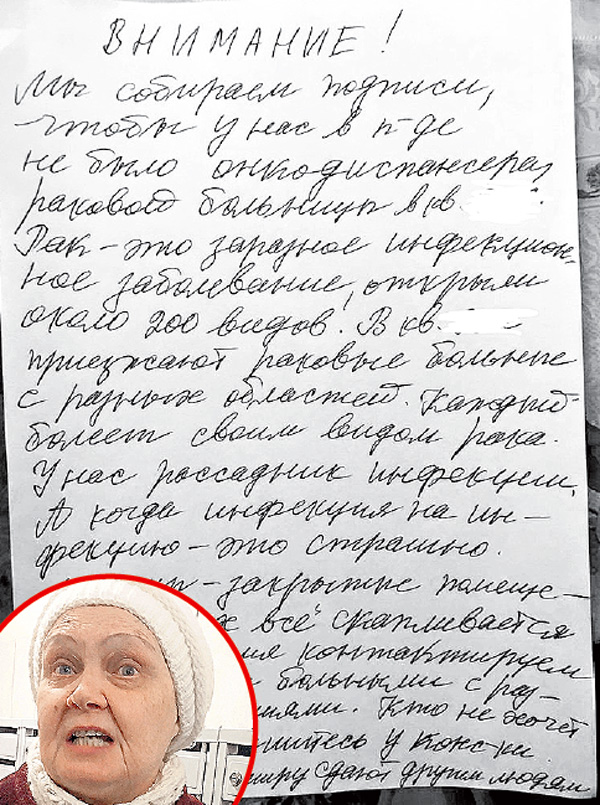 ВНИМАНИЕ!
Мы собираем подписи,
чтобы у нас в п-де
не было онкодиспансера,
раковой больницы в кв.
Рак - это заразное инфекцион-
ное заболевание, открыли
около 200 видов. В кв.
приезжают раковые больные
с разных областей. Каждый
болеет своим видом рака.
У нас рассадник инфекции.
А когда инфекция на ин-
фекцию - это страшно.
- закрытые помеще-
всё скапливается
контактируем
больными с раз-
Кто не хочет
у конс-ки
сдают другим людям